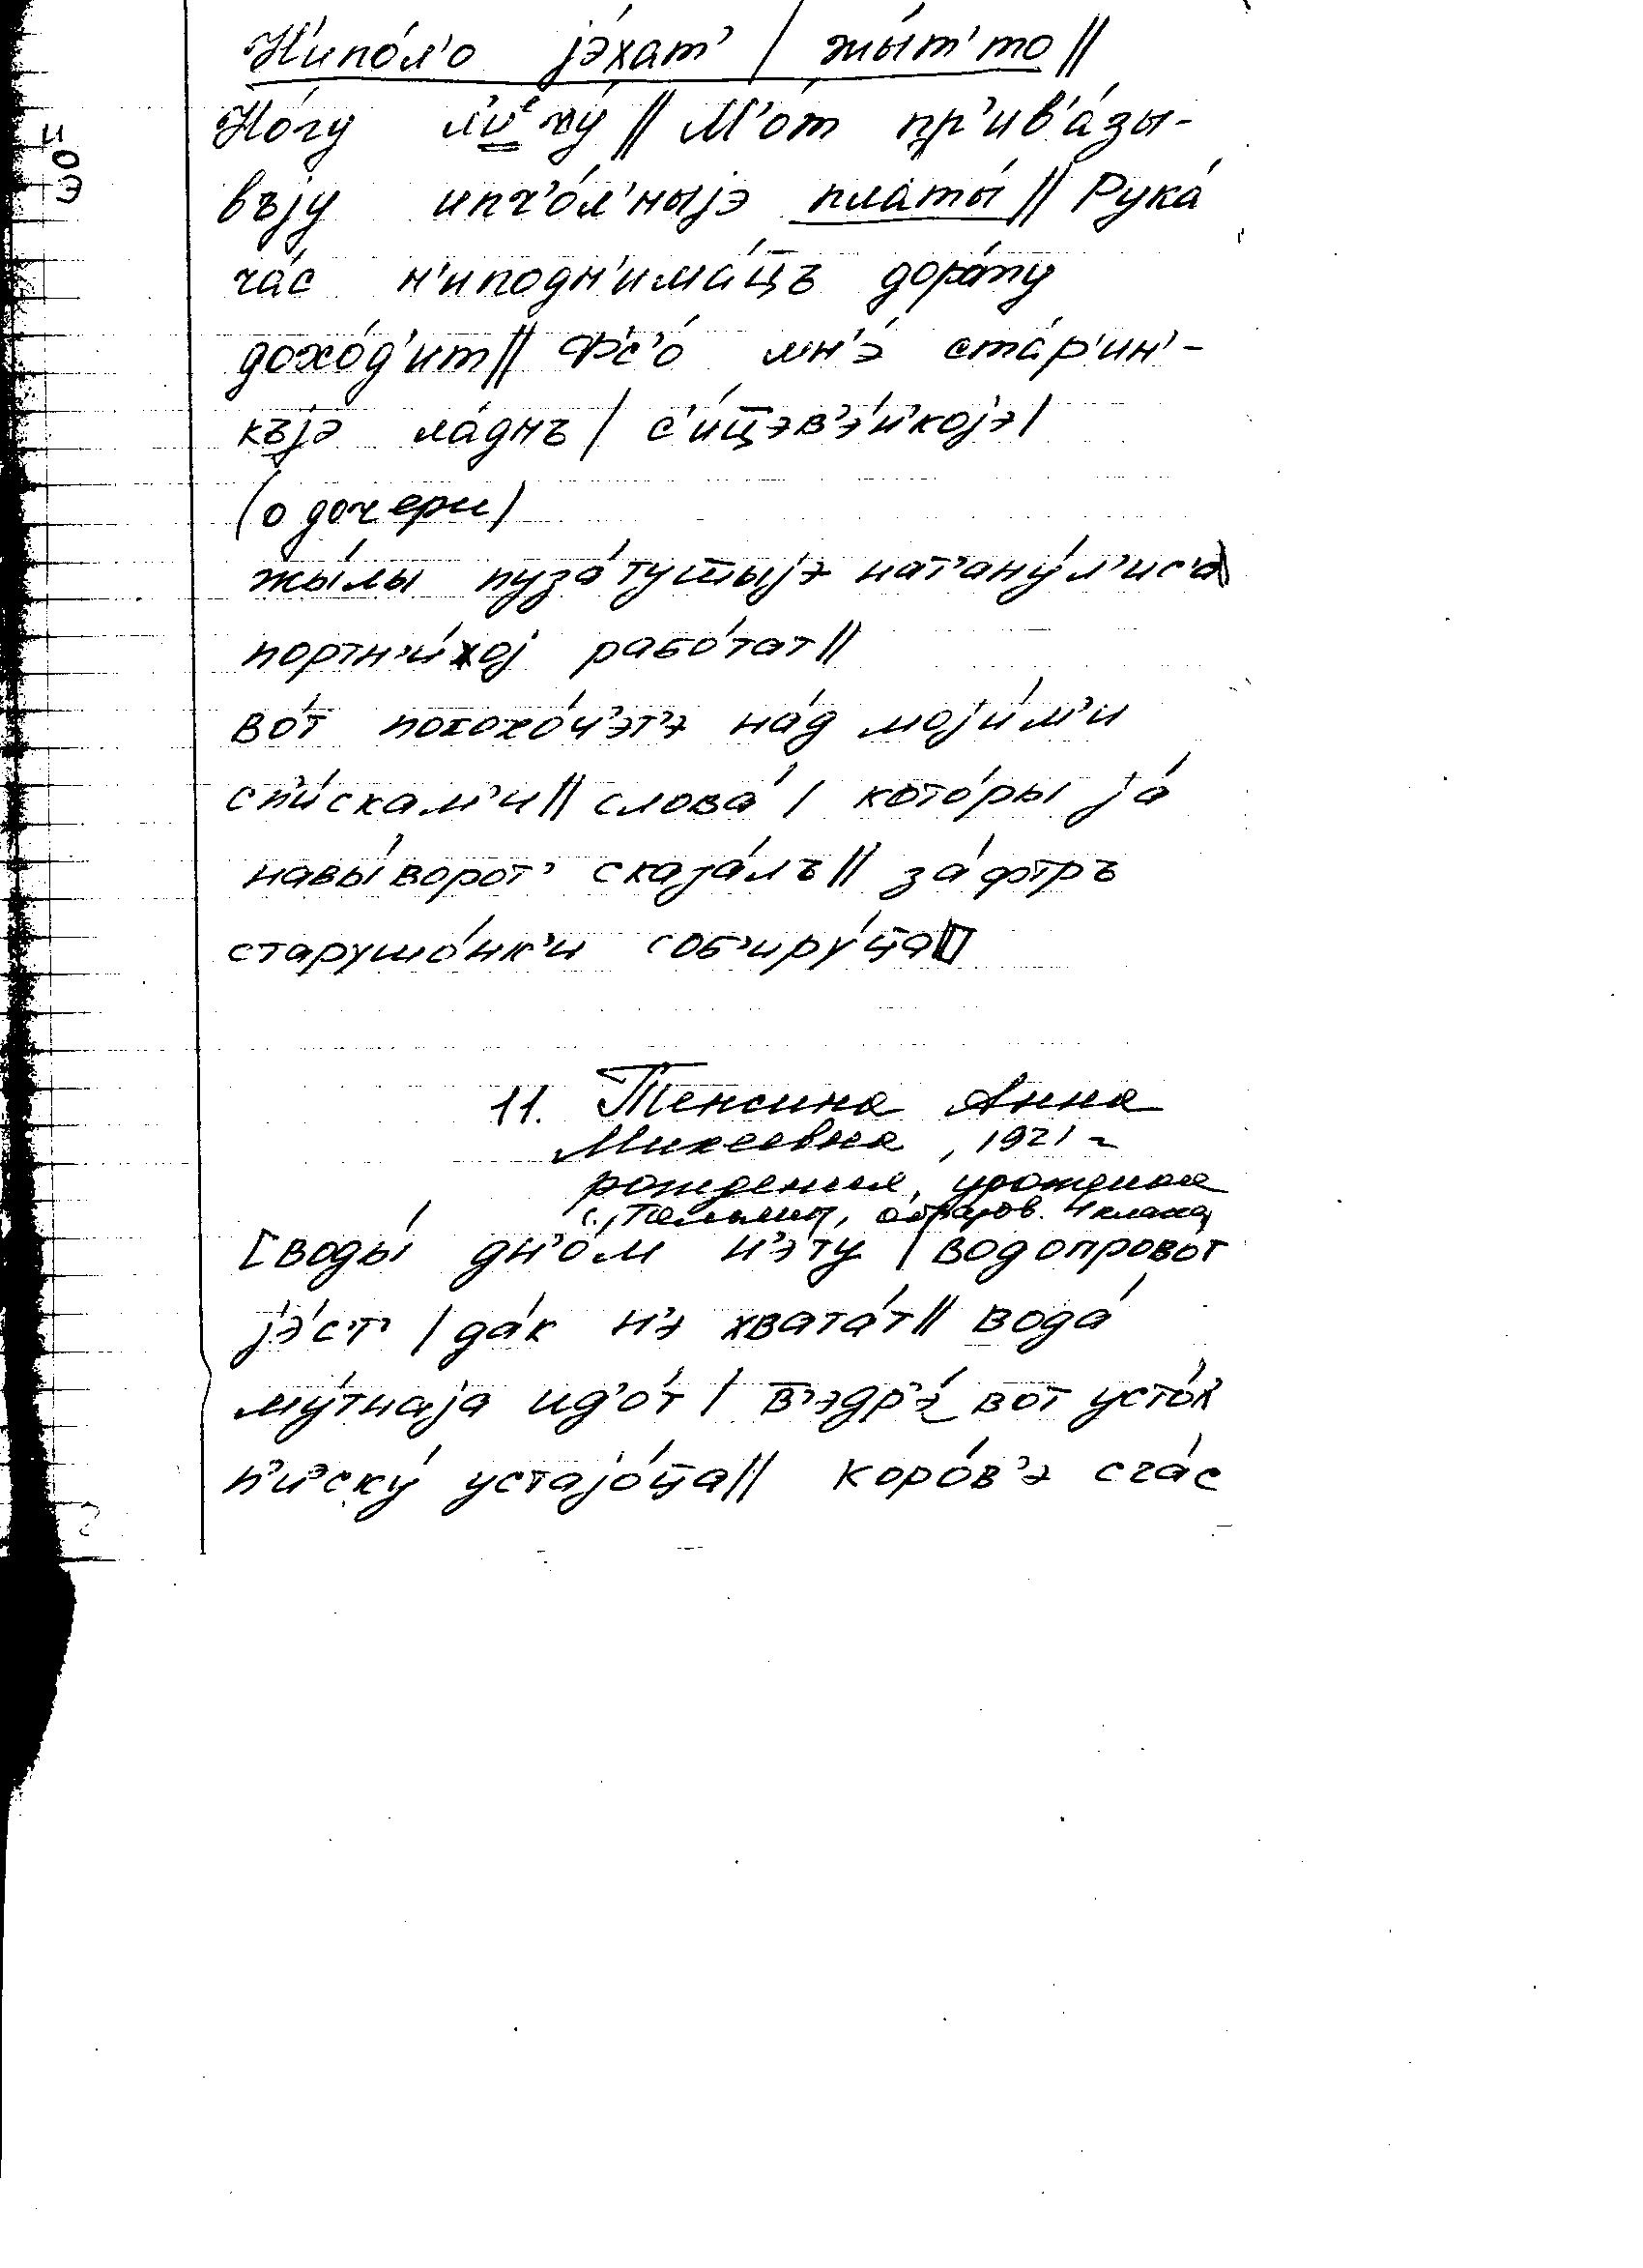 Н'ипо́л'о jэ́хат' / жы́т'то //
Но́гу л'иᵉчу́ // М'о́т пр'ив'а́зы-
въjу ипч'о́л'ныjэ платы́ // Рука́
ча́с н'иподн'има́ц̄ъ дора́ту
дохо́д'ит // Ф'с'о́ мн'э́ ста́р'ин'-
къjэ ла́днъ / с'и́ц̄эв'э́н'коjэ /
(о дочери)
жы́лы пуза́тушыjэ нат'ану́л'ис'а
портн'и́хоj рабо́тат //
во́т похохо́ч'эт'э на́д моjи́м'и
сп'и́скам'и // слова́ / кото́ры jа́
навы́ворот' сказа́лъ // за́фтръ
старушо́нк'и соб'иру́ц̄а
11. Тенсина Анна
Михеевна, 1921 г
рождения, урожденая
с. , образов. 4 класса
[воды́ дн'о́м н'э́ту / водопрово́т
jэ́с'т' / да́к н'э хвата́т // вода́
му́тнаjа ид'о́т / в'эдр'э́ вот усто́к
п'и'ску́ устаjо́ц̄а // коро́в'э сча́с
и
о
э